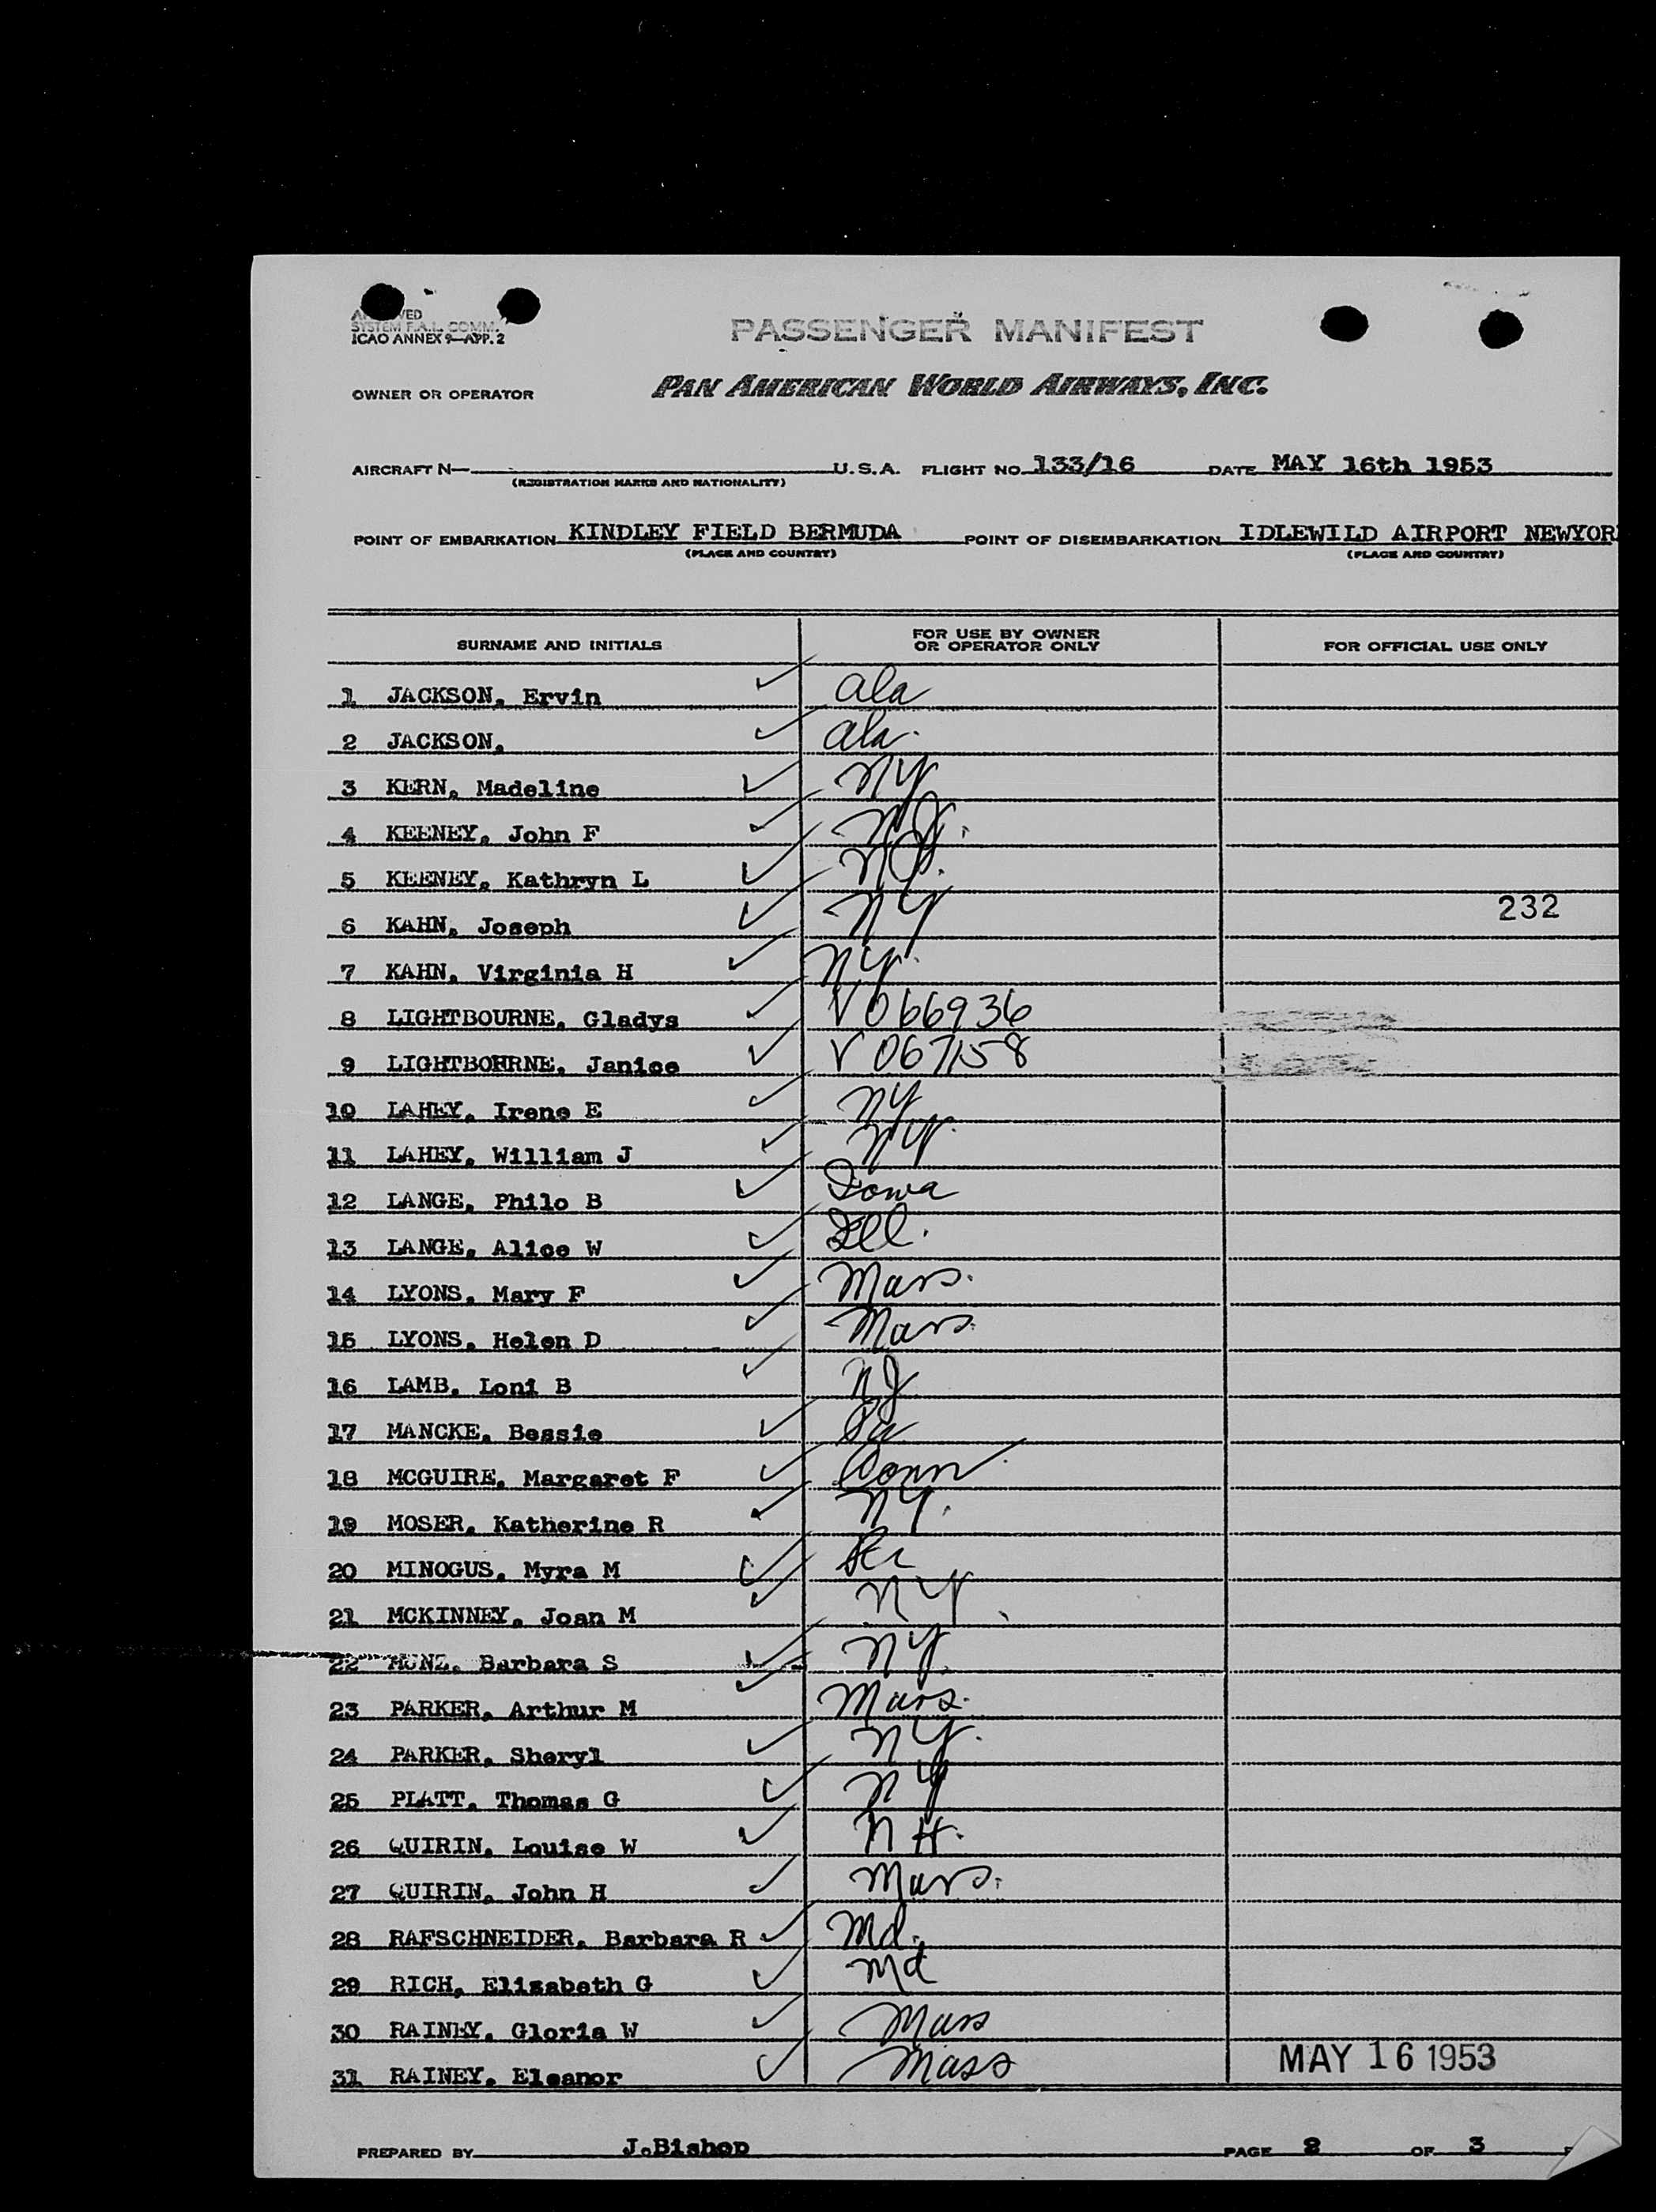 APPROVED
SYSTEM F.A.L. COMM.
ICAO ANNEX 9—APP. 2
PASSENGER MANIFEST
OWNER OR OPERATOR PAN AMERICAN WORLD AIRWAYS, INC.
AIRCRAFT N— U.S.A. FLIGHT NO. 133/16 DATE MAY 16th 1953
(REGISTRATION MARKS AND NATIONALITY)
POINT OF EMBARKATION KINDLEY FIELD BERMUDA POINT OF DISEMBARKATION IDLEWILD AIRPORT NEWYOR
(PLACE AND COUNTRY) (PLACE AND COUNTRY)
SURNAME AND INITIALS FOR USE BY OWNER OR OPERATOR ONLY FOR OFFICIAL USE ONLY
1 JACKSON, Ervin Ala
2 JACKSON, Ala.
3 KERN, Madeline NY
4 KEENEY, John F NJ.
5 KEENEY, Kathryn L NJ.
6 KAHN, Joseph NY 232
7 KAHN, Virginia H NY.
8 LIGHTBOURNE, Gladys V066936
9 LIGHTBOHRNE, Janice V 067158
10 LAHEY, Irene E NY
11 LAHEY, William J NY.
12 LANGE, Philo B Iowa
13 LANGE, Alice W Ill.
14 LYONS, Mary F Mass.
15 LYONS, Helen D Mass.
16 LAMB, Loni B NJ
17 MANCKE, Bessie Pa
18 MCGUIRE, Margaret F Conn.
19 MOSER, Katherine R NY.
20 MINOGUS, Myra M
21 MCKINNEY, Joan M NY.
22 MUNZ, Barbara S NY.
23 PARKER, Arthur M Mass.
24 PARKER, Sheryl NY.
25 PLATT, Thomas G NY
26 QUIRIN, Louise W NH.
27 QUIRIN, John H Mass.
28 RAFSCHNEIDER, Barbara R Md.
29 RICH, Elisabeth G Md
30 RAINEY, Gloria W Mass
31 RAINEY, Eleanor Mass MAY 16 1953
PREPARED BY J.Bishop PAGE 2 OF 3